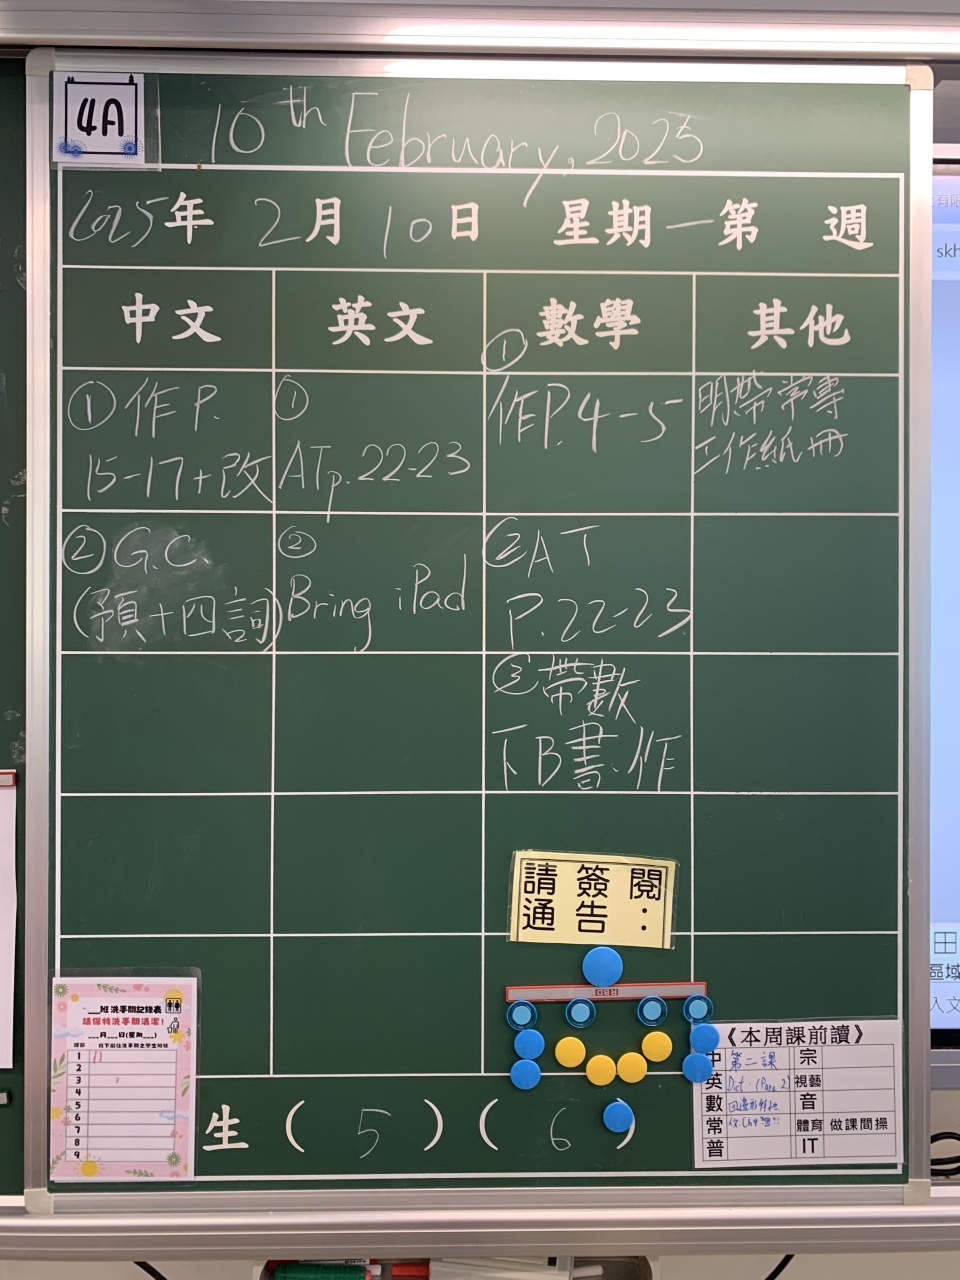 4A
10th February, 2025
2025年 2月 10日 星期一 第 週
中文 英文 數學 其他
① 作 P.
15-17+改
①
ATp.22-23
①
作P.4-5
明帶常專
工作紙冊
② G.C.
(預+四詞)
②
Bring iPad
② AT
P.22-23
③ 帶數
下B書.作
請簽閱
通告：
RBD
___班洗手間記錄表
請保持洗手間清潔！
___月___日(星期___)
1
2
3
4
5
6
7
8
9
生 ( 5 ) ( 6 )
《本周課前讀》
中 第二課 宗
英 Dict: (Para 2) 視藝
數 音
常 體育 做課間操
普 IT
有限
skh
區域
入文